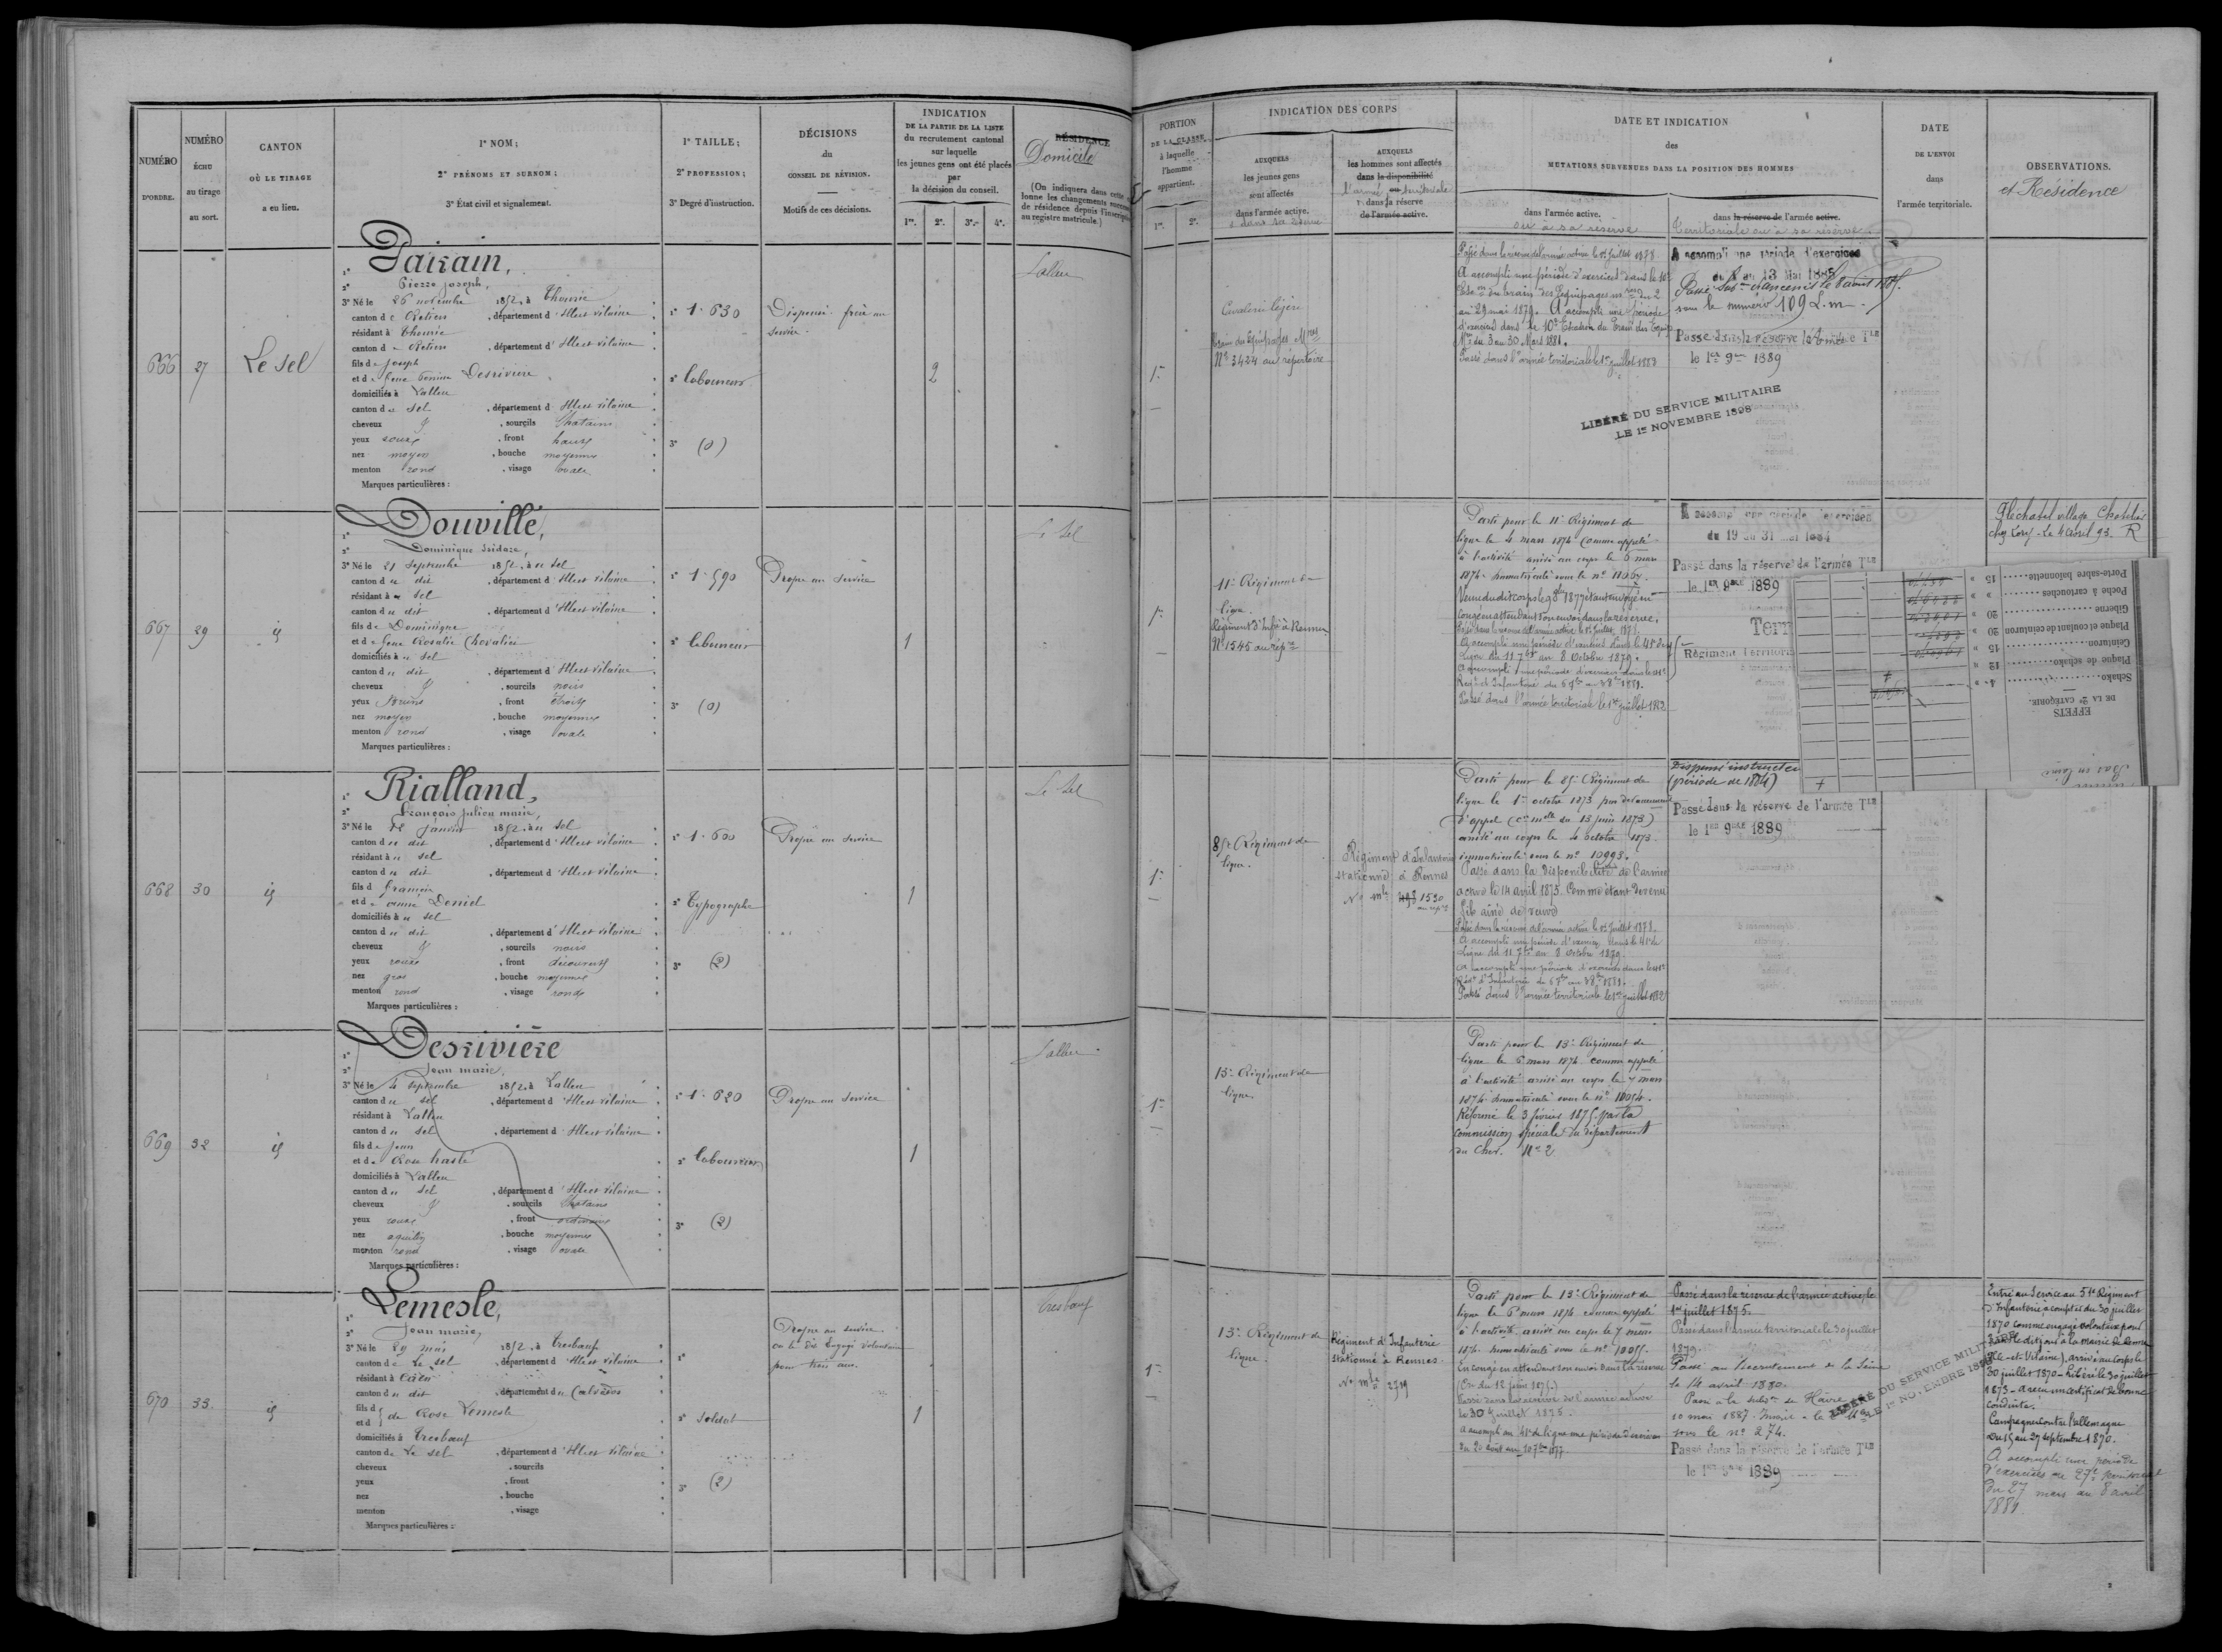 NUMÉRO
D'ORDRE.
NUMÉRO
ÉCHU
au tirage
au sort.
CANTON
OÙ LE TIRAGE
a eu lieu.
1° NOM;
2° PRÉNOMS ET SURNOM;
3° État civil et signalement.
1° TAILLE;
2° PROFESSION;
3° Degré d'instruction.
DÉCISIONS
du
CONSEIL DE RÉVISION.
Motifs de ces décisions.
INDICATION
DE LA PARTIE DE LA LISTE
du recrutement cantonal
sur laquelle
les jeunes gens ont été placés
par
la décision du conseil.
1re. 2e. 3e. 4e.
RÉSIDENCE
Domicile
(On indiquera dans cette
lonne les changements
de résidence depuis l'inscription
au registre matricule.)
666
27
Le Sel
1°
2° Pierre Joseph,
3° Né le 26 novembre 1852, à Thourie
canton de Retiers, département d'Ille et Vilaine
résidant à Thourie
canton de Retiers, département d'Ille et Vilaine
fils de Joseph
et de feue Desriviere
domiciliés à Lalleu
canton du Sel, département d'Ille et Vilaine
cheveux, sourcils Chatains
yeux roux, front haut
nez moyen, bouche moyenne
menton rond, visage ovale
Marques particulières :
1° 1. 630
2° laboureur
3° (0)
Dispensé frère au
service.
2
Lalleu
667
29
id
1° Douville,
2° Dominique Isidore,
3° Né le 21 Septembre 1852, à au Sel
canton du dit, département d'Ille et Vilaine
résidant au Sel
canton du dit, département d'Ille et Vilaine
fils de Dominique
et de feue Rosalie Chevalier
domiciliés au Sel
canton du dit, département d'Ille et Vilaine
cheveux, sourcils noirs
yeux bruns, front étroit
nez moyen, bouche moyenne
menton rond, visage ovale
Marques particulières :
1° 1. 590
2° laboureur
3° (0)
Propre au Service
1
Le Sel
668
30
id
1° Rialland,
2° François Julien Marie,
3° Né le Janvier 1852, à au Sel
canton du dit, département d'Ille et Vilaine
résidant au Sel
canton du dit, département d'Ille et Vilaine
fils de François
et de Anne Deniel
domiciliés au Sel
canton du dit, département d'Ille et Vilaine
cheveux, sourcils noirs
yeux roux, front découvert
nez gros, bouche moyenne
menton rond, visage rond
Marques particulières :
1° 1. 600
2° Typographe
3° (2)
Propre au service
1
Le Sel
669
32
id
1° Desriviere
2° Jean Marie,
3° Né le 4 Septembre 1852, à Lalleu
canton du Sel, département d'Ille et Vilaine
résidant à Lalleu
canton du Sel, département d'Ille et Vilaine
fils de Jean
et de Rose hasté
domiciliés à Lalleu
canton du Sel, département d'Ille et Vilaine
cheveux, sourcils Chatains
yeux roux, front ordinaire
nez aquilin, bouche moyenne
menton rond, visage ovale
Marques particulières :
1° 1. 620
2° laboureur
3° (2)
Propre au Service
1
Lalleu
670
33
id
1° Lemesle,
2° Jean Marie,
3° Né le 29 mai 1852, à Tresbœuf
canton de Le Sel, département d'Ille et Vilaine
résidant à Caen
canton du dit, département du Calvados
fils d
et d de Rose Lemesle
domiciliés à Tresbœuf
canton de Le Sel, département d'Ille et Vilaine
cheveux, sourcils
yeux, front
nez, bouche
menton, visage
Marques particulières :
1°
2° Soldat
3° (2)
Propre au service.
a été dit Engagé volontaire
pour trois ans.
1
Tresbœuf
PORTION
DE LA CLASSE
à laquelle
l'homme
appartient.
1re. 2e.
INDICATION DES CORPS
AUXQUELS
les jeunes gens
sont affectés
dans l'armée active.
AUXQUELS
les hommes sont affectés
dans la disponibilité
l'armée territoriale
dans la réserve
de l'armée active.
DATE ET INDICATION
des
MUTATIONS SURVENUES DANS LA POSITION DES HOMMES
dans l'armée active.
ou à sa réserve
dans la réserve de l'armée active.
Territoriale ou à sa réserve.
DATE
DE L'ENVOI
dans
l'armée territoriale.
OBSERVATIONS.
et Résidence
1re
Cavalerie légère
Train des Equipages Mres
N° 3424 au répertoire
Passé dans la réserve de l'armée active le 1er Juillet 1878
A accompli une période d'exercices dans le 10e
Esc. du train des Equipages mres du 2
au 29 mai 1879. A accompli une période
d'exercices dans le 10e Escadron du Train des Equip.
Mres du 3 au 30 Mars 1881.
Passé dans l'armée territoriale le 1er juillet 1883
A accompli une période d'exercices
du 1 au 13 Mai 1885
sous le numéro 109 L.m
Passé dans la réserve de l'armée Tle
le 1er 9bre 1889
LIBÉRÉ DU SERVICE MILITAIRE
LE 1er NOVEMBRE 1898
1re
11e Régiment de
ligne.
Régiment d'Infie à Rennes
N° 1545 au répre
Parti pour le 11e Régiment de
ligne le 4 mars 1874 comme appelé
à l'activité arrivé au corps le 6 mars
1874 immatriculé sous le n°
congé en attendant son envoi dans la réserve.
Passé dans la réserve de l'armée active le 1er Juillet 1878.
A accompli une période d'exercices dans le 41e de
Ligne du 11 7bre au 8 Octobre 1879.
A accompli une période d'exercices dans le 41e
Regt d'Infanterie
Passé dans l'armée territoriale le 1er juillet 1882
A accompli une période d'exercices
du 19 au 31 Mai 1884
Passé dans la réserve de l'armée Tle
le 1er 9bre 1889
Terr
Régiment Territori
chez Lory - Le 4 Avril 93. R
EFFETS
DE LA 2e CATÉGORIE.
Schako 4
Plaque de schako 12
Ceinturon 15
Plaque et coulant de ceinturon 20
Giberne 20
Poche à cartouches
Porte-sabre baïonnette 15
1re
85e Régiment de
ligne.
Régiment d'Infanterie
stationné à Rennes
N° mle 1530
au répre
Parti pour le 85e Régiment de
ligne le 1er octobre 1873 par devancement
d'appel (cre mlle du 13 juin 1873)
arrivé au corps le 4 octobre 1873.
immatriculé sous le n° 10993.
Passé dans la disponibilité de l'armée
active le 14 avril 1875. Comme étant devenu
fils aîné de veuve
Passé dans la réserve de l'armée active le 1er Juillet 1878.
A accompli une période d'exercices dans le 41e de
Ligne du 11 7bre au 8 Octobre 1879.
A accompli une période d'exercices dans le 41e
Régt d'Infanterie
Passé dans l'armée territoriale le 1er juillet 1882
(période de 1884)
Passé dans la réserve de l'armée Tle
le 1er 9bre 1889
1re
13e Régiment de
ligne.
Parti pour le 13e Régiment de
ligne le 6 mars 1874 comme appelé
à l'activité arrivé au corps le 7 mars
1874 immatriculé sous le n° 10054.
Réformé le 3 février 1875 par la
commission spéciale du département
du Cher. N° 2
1re
13e Régiment de
ligne.
Régiment d'Infanterie
stationné à Rennes.
N° mle 2719
Parti pour le 13e Régiment de
ligne le 6 mars 1874 comme appelé
à l'activité arrivé au corps le 7 mars
1874. immatriculé sous le n° 10055.
En congé en attendant son envoi dans la réserve
Passé dans la réserve de l'armée active
le 30 Juillet 1875.
A accompli au 41e de ligne une période d'exercices
du 20 août au 10 7bre 1877
Passé dans la réserve de l'armée active le
1er juillet 1875.
Passé dans l'armée territoriale le 30 juillet
1879.
Passé au Recrutement de la Seine
le 14 avril 1880.
Passé à la subdon du Havre
10 mai 1887
sous le n° 274.
Passé dans la réserve de l'armée Tle
le 1er 9bre 1889
LIBÉRÉ DU SERVICE MILITAIRE
LE 1er NOVEMBRE
Entré au Service au 51e Régiment
d'Infanterie à compter du 30 juillet
1870 comme engagé volontaire pour
(Ille-et-Vilaine), arrivé au corps le
30 juillet 1870 - Libéré le 30 juillet
1873 - a reçu un certificat de bonne
conduite.
Campagne contre l'allemagne
du 5 au 27 septembre 1870.
A accompli une période
d'exercices au 27e territorial
du 27 mars au 8 avril
1881